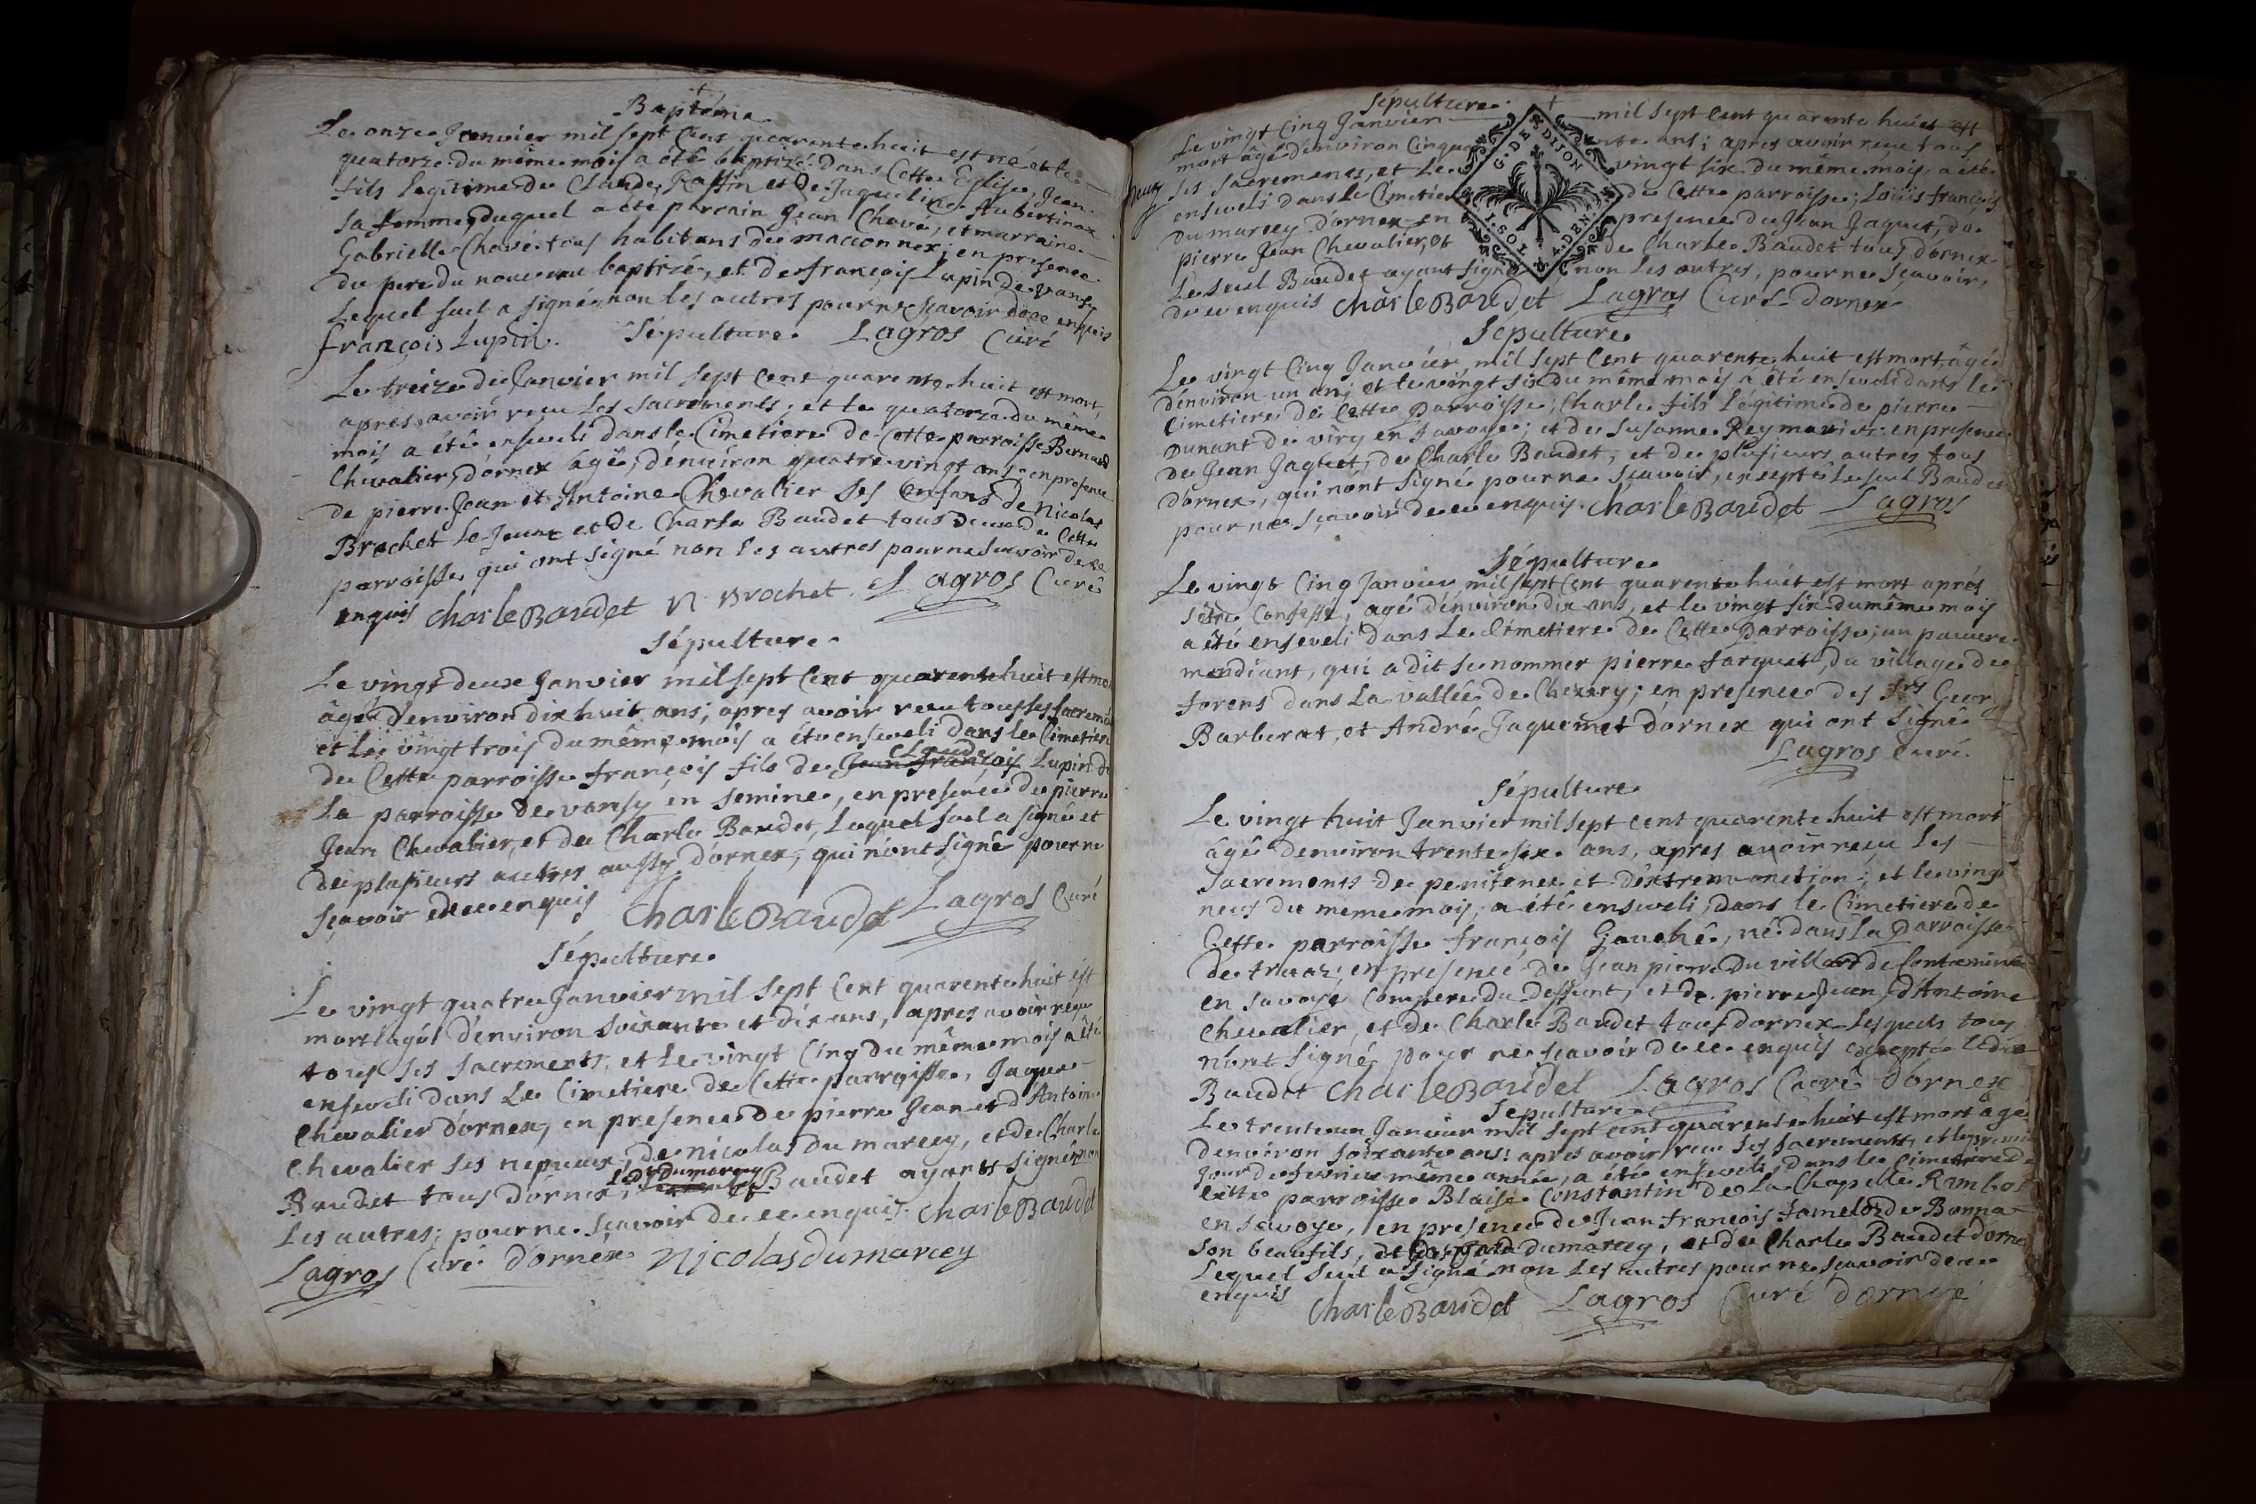 Baptême
Le onze Janvier mil sept Cens quarente huit est né et le
quatorze du même mois a été baptizé dans Cette Eglise, Jean
fils legitime de Claude Raffin et de Jaqueline Aubertinax
sa femme, duquel a été parrain Jean Chavé, et marraine
Gabrielle Chavé tous habitans de maconnex; en presence
du pere du nouveau baptizé, et de françois Lupin de vansy
Lequel seul a signé non les autres pour ne sçavoir de ce enquis
françois Lupin. Lagros Curé
Sépulture
Le treize de Janvier mil sept Cent quarente huit est mort,
apres avoir reçu Les sacrements, et le quatorze du même
mois a été enseveli dans le Cimetiere de Cette parroisse Bernard
Chevalier, d'ornex âgé, d'environ quatre vingt ans en presence
de pierre Jean et Antoine Chevalier ses Enfans de Nicolas
Brochet Le Jeune et de Charle Baudet tous deux de Cette
parroisse qui ont signé non les autres pour ne sçavoir de ce
enquis Charle Baudet N Brochet Lagros Curé
Sépulture
Le vingt deux Janvier mil sept Cent quarente huit est mort
âgé d'environ dix huit ans, apres avoir reçu tous ses sacremens
et Le vingt trois du même mois a été enseveli dans le Cimetiere
Claude
de Cette parroisse françois fils de Jean françois Lupin de
La parroisse de vansy en semine, en presence de pierre
Jean Chevalier, et de Charle Baudet, Lequel seul a signé et
de plusieurs autres aussy d'ornex, qui n'ont signé pour ne
sçavoir de ce enquis Charle Baudet Lagros Curé
Sépulture
Le vingt quatre Janvier mil sept Cent quarente huit est
mort âgé d'environ soixante et dix ans, apres avoir reçu
tous ses sacrements, et Le vingt Cinq du même mois a été
enseveli dans Le Cimetiere de Cette parroisse, Jaque
Chevalier d'ornex, en presence de pierre Jean et d'Antoine
Chevalier ses nepveux, de nicolas du marcey, et de Charle
ledt dumarcey
Baudet tous d'ornex, et Baudet ayants signé non
Les autres; pour ne sçavoir de ce enquis. Charle Baudet
Lagros Curé d'ornex Nicolas dumarcey
Sépulture
Le vingt Cinq Janvier mil sept Cent quarente huit est
mort âgé d'environ Cinquante ans; apres avoir reçu tous
ses sacrements, et Le vingt six du même mois, a été
enseveli dans le Cimetiere de Cette parroisse; Loüis françois
du marcey d'ornex en presence de Jean Jaquet, de
pierre Jean Chevalier, et de Charle Baudet tous d'ornex
Le seul Baudet ayant signé non Les autres, pour ne sçavoir,
de ce enquis Charle Baudet Lagros Curé d'ornex
G. DE DIJON
1. SOL 4. DEN.
Sépulture
Le vingt Cinq Janvier, mil sept Cent quarente huit est mort, âgé
d'environ un an, et le vingt six du même mois a été enseveli dans le
Cimetiere de Cette parroisse; Charle fils Légitime de pierre
Dunant de viry en Savoye; et de Susanne Rey mariés: en presence
de Jean Jaquet, de Charle Baudet, et de plusieurs autres tous
d'ornex, qui n'ont signé pour ne sçavoir, excepté Le seul Baudet
pour ne sçavoir de ce enquis. Charle Baudet Lagros
Sépulture
Le vingt Cinq Janvier mil sept Cent quarente huit est mort aprés
s'être Confessé, agé d'environ dix ans, et le vingt six du même mois
a été enseveli dans Le Cimetiere de Cette Parroisse, un pauvre
mendiant, qui a dit se nommer pierre farquet, du village de
forens dans La vallée de Chezery; en presence des Srs George
Barberat, et André Jaquemet d'ornex qui ont signé
Lagros Curé.
Sépulture
Le vingt huit Janvier mil sept cent quarente huit est mort
âgé d'environ trente six ans, apres avoir reçu les
Sacrements de penitence et d'extremonction, et le vingt
neuf du meme mois, a été enseveli, dans le Cimetiere de
Cette parroisse françois Gauché, né dans la Parroisse
de en presence de Jean pierre du villard de Contamine
en savoye Compere du deffunt, et de pierre Jean, d'Antoine
Chevalier, et de Charle Baudet tous d'ornex Lesquels tous
n'ont signé, pour ne sçavoir de ce enquis excepté ledit
Baudet Charle Baudet Lagros Curé d'ornex
Sepulture
Le trente un Janvier mil sept cent quarente huit est mort âgé
d'environ soixante ans: apres avoir reçu ses sacrements, et le premier
jour de fevrier même année, a été enseveli, dans le Cimetiere de
Cette parroisse Blaise Constantin de La Chapelle Rambos
en savoye, en presence de Jean françois de Bonna
son beaufils, de dumarcey, et de Charle Baudet d'ornex
Lequel seul a signé non Les autres pour ne sçavoir de ce
enquis Charle Baudet Lagros Curé d'ornex